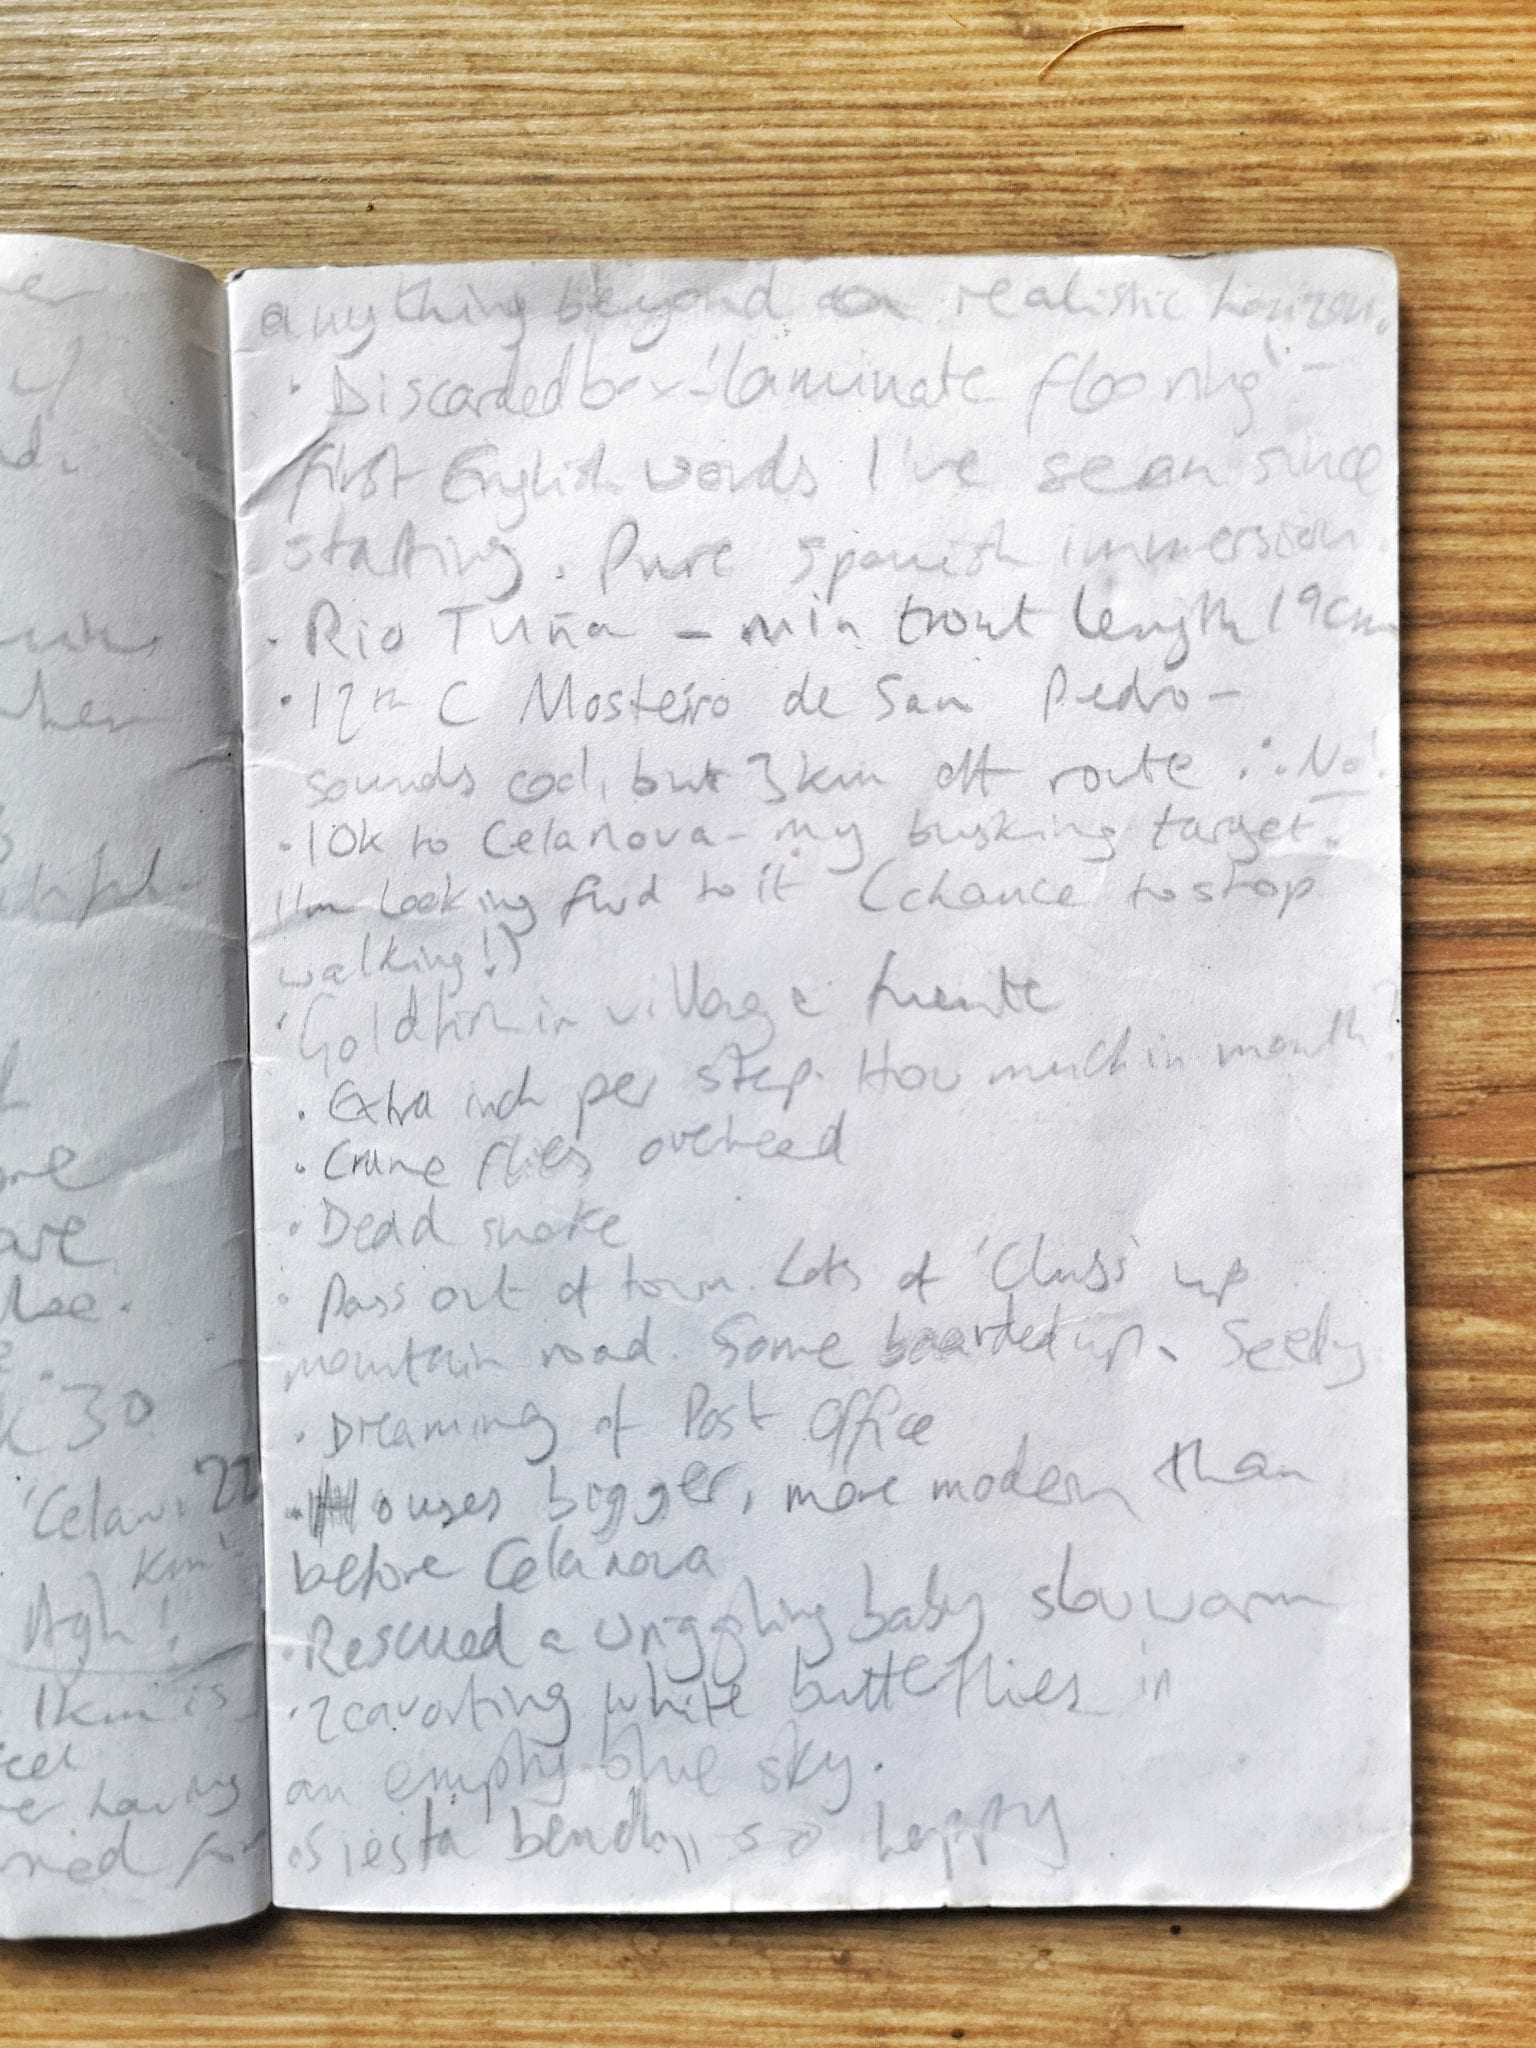 anything beyond a realistic horizon.
· Discarded box - 'laminate flooring' -
first English words I've seen since
starting. Pure Spanish immersion.
· Rio Tuña - min trout length 19cm
· 12th C Mosteiro de San Pedro -
sounds cool, but 3km off route ∴ No!
· 10k to Celanova - my busking target.
I'm looking fwd to it (chance to stop
walking!)
· Goldfish in village fuente
· Extra inch per step. How much in month?
· Crane flies overhead
· Dead snake
· Pass out of town. Lots of 'Clubs' up
mountain road. Some boarded up. Seedy
· Dreaming of Post Office
· Houses bigger, more modern than
before Celanova
· Rescued a wriggling baby slow worm
· 2 cavorting white butterflies in
an empty blue sky.
· Siesta bench, so happy
30
'Celan. 22
km'
Agh!
1km is
having